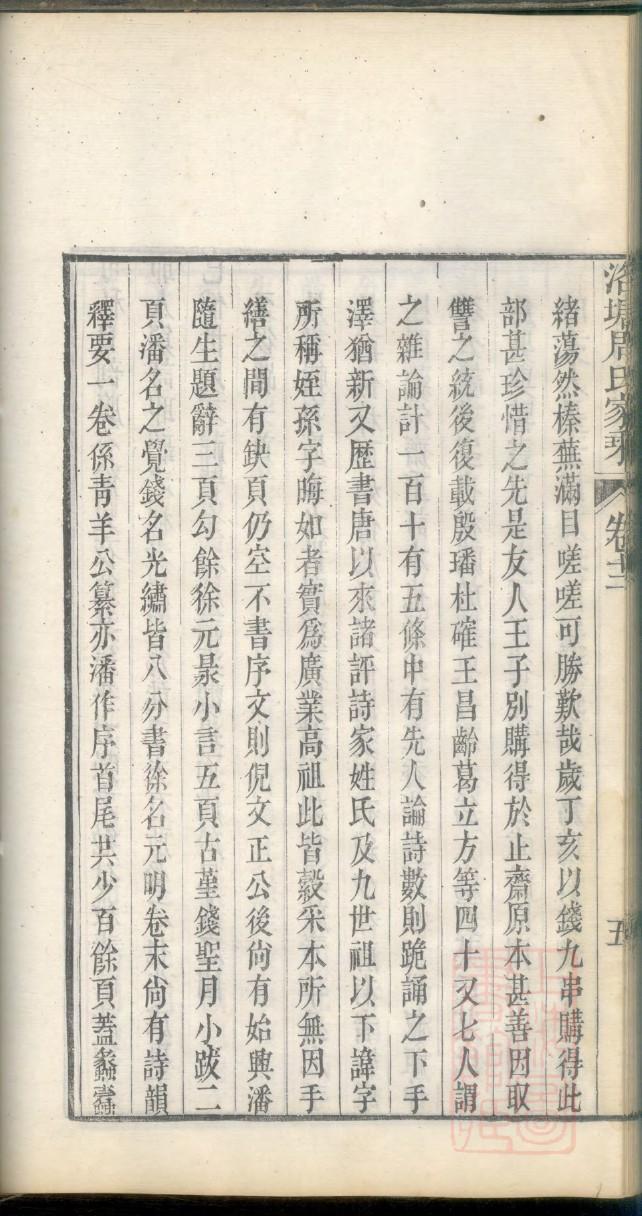 洛塘周氏家乘 卷十二 五
緒蕩然榛蕪滿目嗟嗟可勝歎哉歲丁亥以錢九串購得此
部甚珍惜之先是友人王子別購得於止齋原本甚善因取
讐之統後復載殷璠杜確王昌齡葛立方等四十又七人謂
之雜論計一百十有五條中有先人論詩數則跪誦之下手
澤猶新又歷書唐以來諸評詩家姓氏及九世祖以下諱字
所稱姪孫字晦如者實爲廣業高祖此皆縠采本所無因手
繕之間有缺頁仍空不書序文則倪文正公後尙有始興潘
隨生題辭三頁勾餘徐元㬎小言五頁古堇錢聖月小跋二
頁潘名之覺錢名光繡皆八分書徐名元明卷末尙有詩韻
釋要一卷係靑羊公纂亦潘作序首尾共少百餘頁蓋蠡蠹